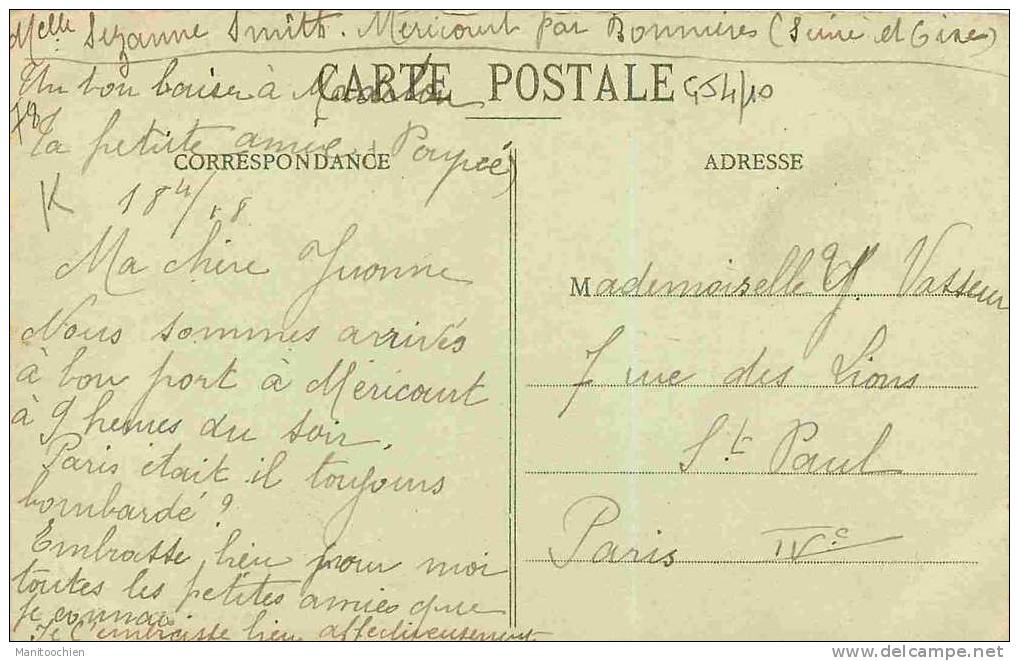 Melle Suzanne Smith. Méricourt par Bonnières (Seine et Oise)
Un bon baiser à
CARTE POSTALE
78
ta petite amie Poupée
CORRESPONDANCE
ADRESSE
K 18
Ma chère Yvonne
Nous sommes arrivés
à bon port à Méricourt
à 9 heures du soir.
Paris était il toujours
bombardé ?
Embrasse bien pour moi
toutes les petites amies que
je connais
Je t'embrasse bien affectueusement
Mademoiselle Y. Vasseur
7 rue des Lions
St Paul
Paris IVe
© Manitoochien
www.delcampe.net